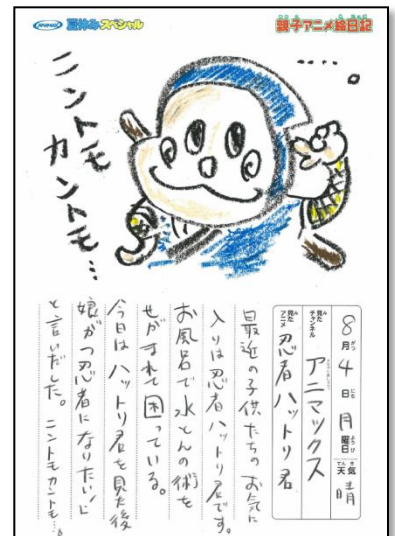 ANIMAX 夏休みスペシャル
親子アニメ絵日記
ニントモ
カントモ…
8月4日月曜日 天気 晴
見たチャンネル アニマックス
見たアニメ 忍者ハットリ君
最近の子供たちのお気に
入りは忍者ハットリ君です。
お風呂で水とんの術を
せがまれて困っている。
今日はハットリ君を見た後
娘が「忍者になりたい!」
と言いだした。ニントモカントモ…。